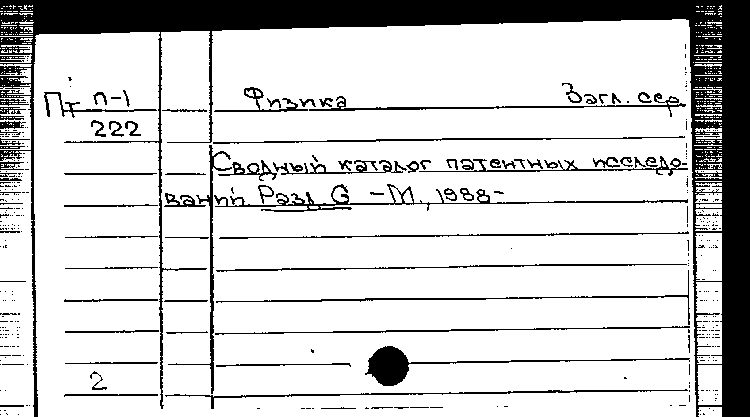 Пт П-1 Физика Загл. сер.
222
Сводный каталог патентных исследо-
ваний. Разд. G -М., 1988-
2